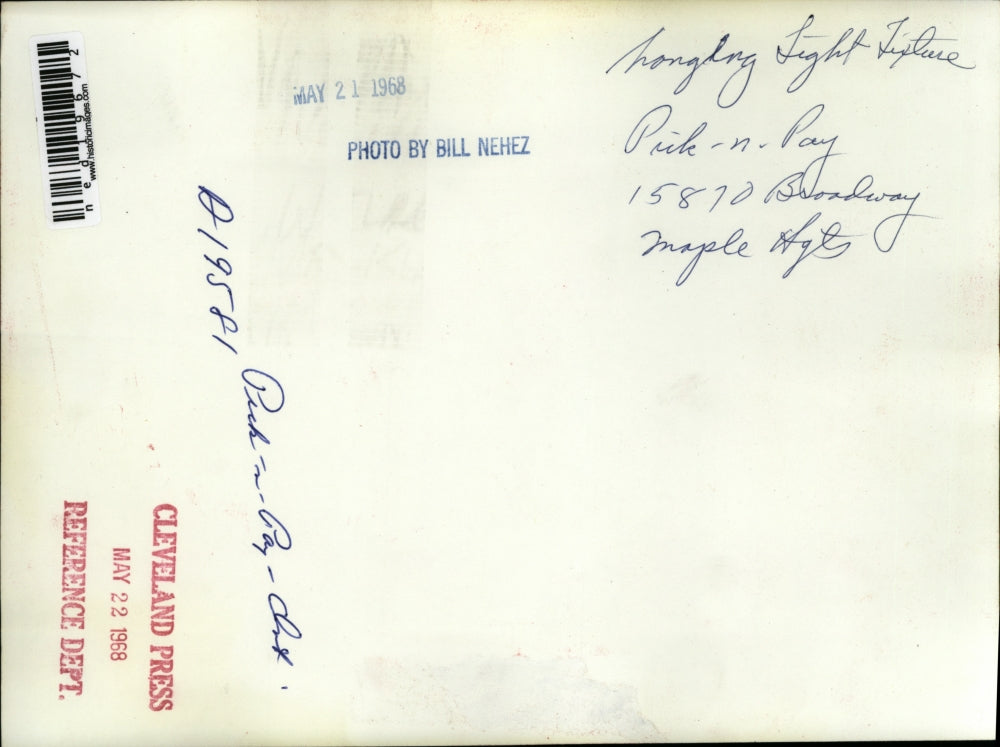 hanging Light Fixture
Pick-n-Pay
15870 Broadway
Maple Hgts
MAY 21 1968
PHOTO BY BILL NEHEZ
ned19672
www.historicimages.com
A19581
Pick-n-Pay-Int.
CLEVELAND PRESS
MAY 22 1968
REFERENCE DEPT.